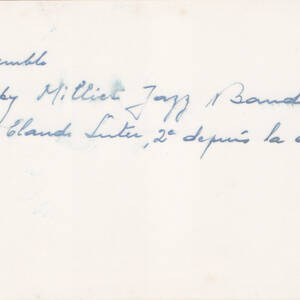 emble
by Milliet Jazz Band
Claude Luter, 2e depuis la